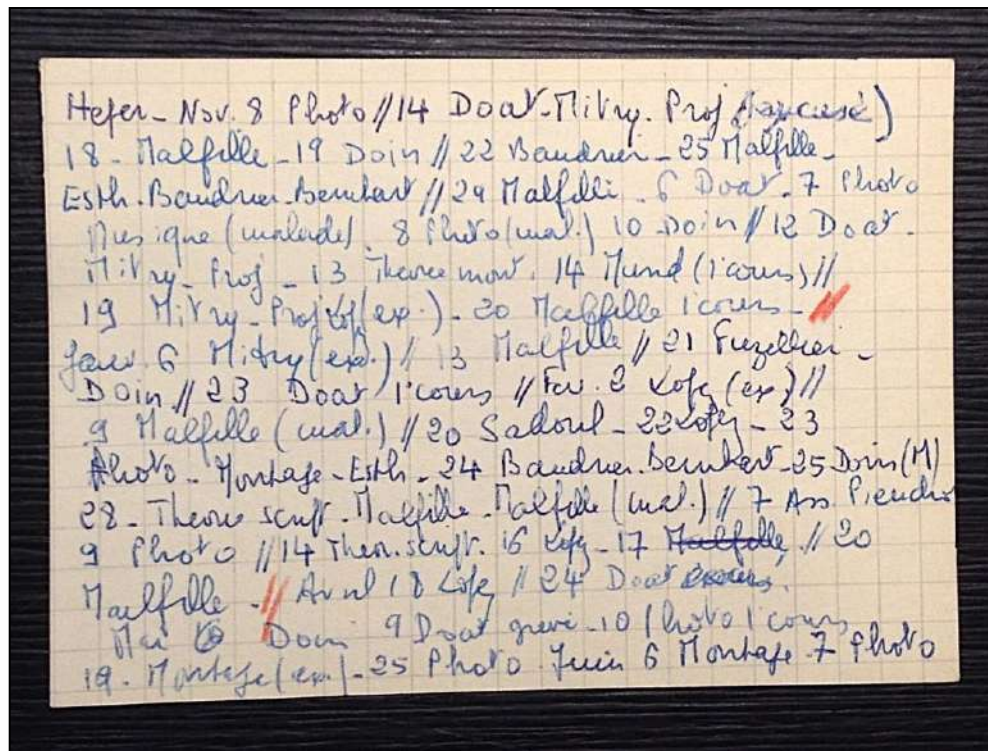 Hefer - Nov. 8 Photo // 14 Doat - Mitry. Proj (excusé)
18 - Malfille - 19 Doin // 22 Baudrier - 25 Malfille -
Esth. Baudrier. Bernhart // 29 Malfille. 6 Doat. 7 Photo
Musique (malade). 8 Photo (mal.) 10 Doin // 12 Doat.
Mitry - Proj - 13 Theorie mont. 14 Mund (1 cours) //
19 Mitry - Proj (exp.) - 20 Malfille 1 cours - //
Janv. 6 Mitry (exp.) // 13 Malfille // 21 Fuzellier -
Doin // 23 Doat 1 cours // Fev. 2 Lofg (ex) //
9 Malfille (mal.) // 20 Sadoul - 22 Lofg - 23
Photo - Montage - Esth - 24 Baudrier. Bernhart - 25 Doin (M)
28 - Theorie script. Malfille. Malfille (mal.) // 7 Ass.
9 Photo // 14 Theor. script. 16 Lofg - 17 Malfille // 20
Malfille - // Avril 18 Lofg // 24 Doat
Mai Doin 9 Doat greve - 10 Photo 1 cours
19 - Montage (exp.) - 25 Photo Juin 6 Montage 7 Photo